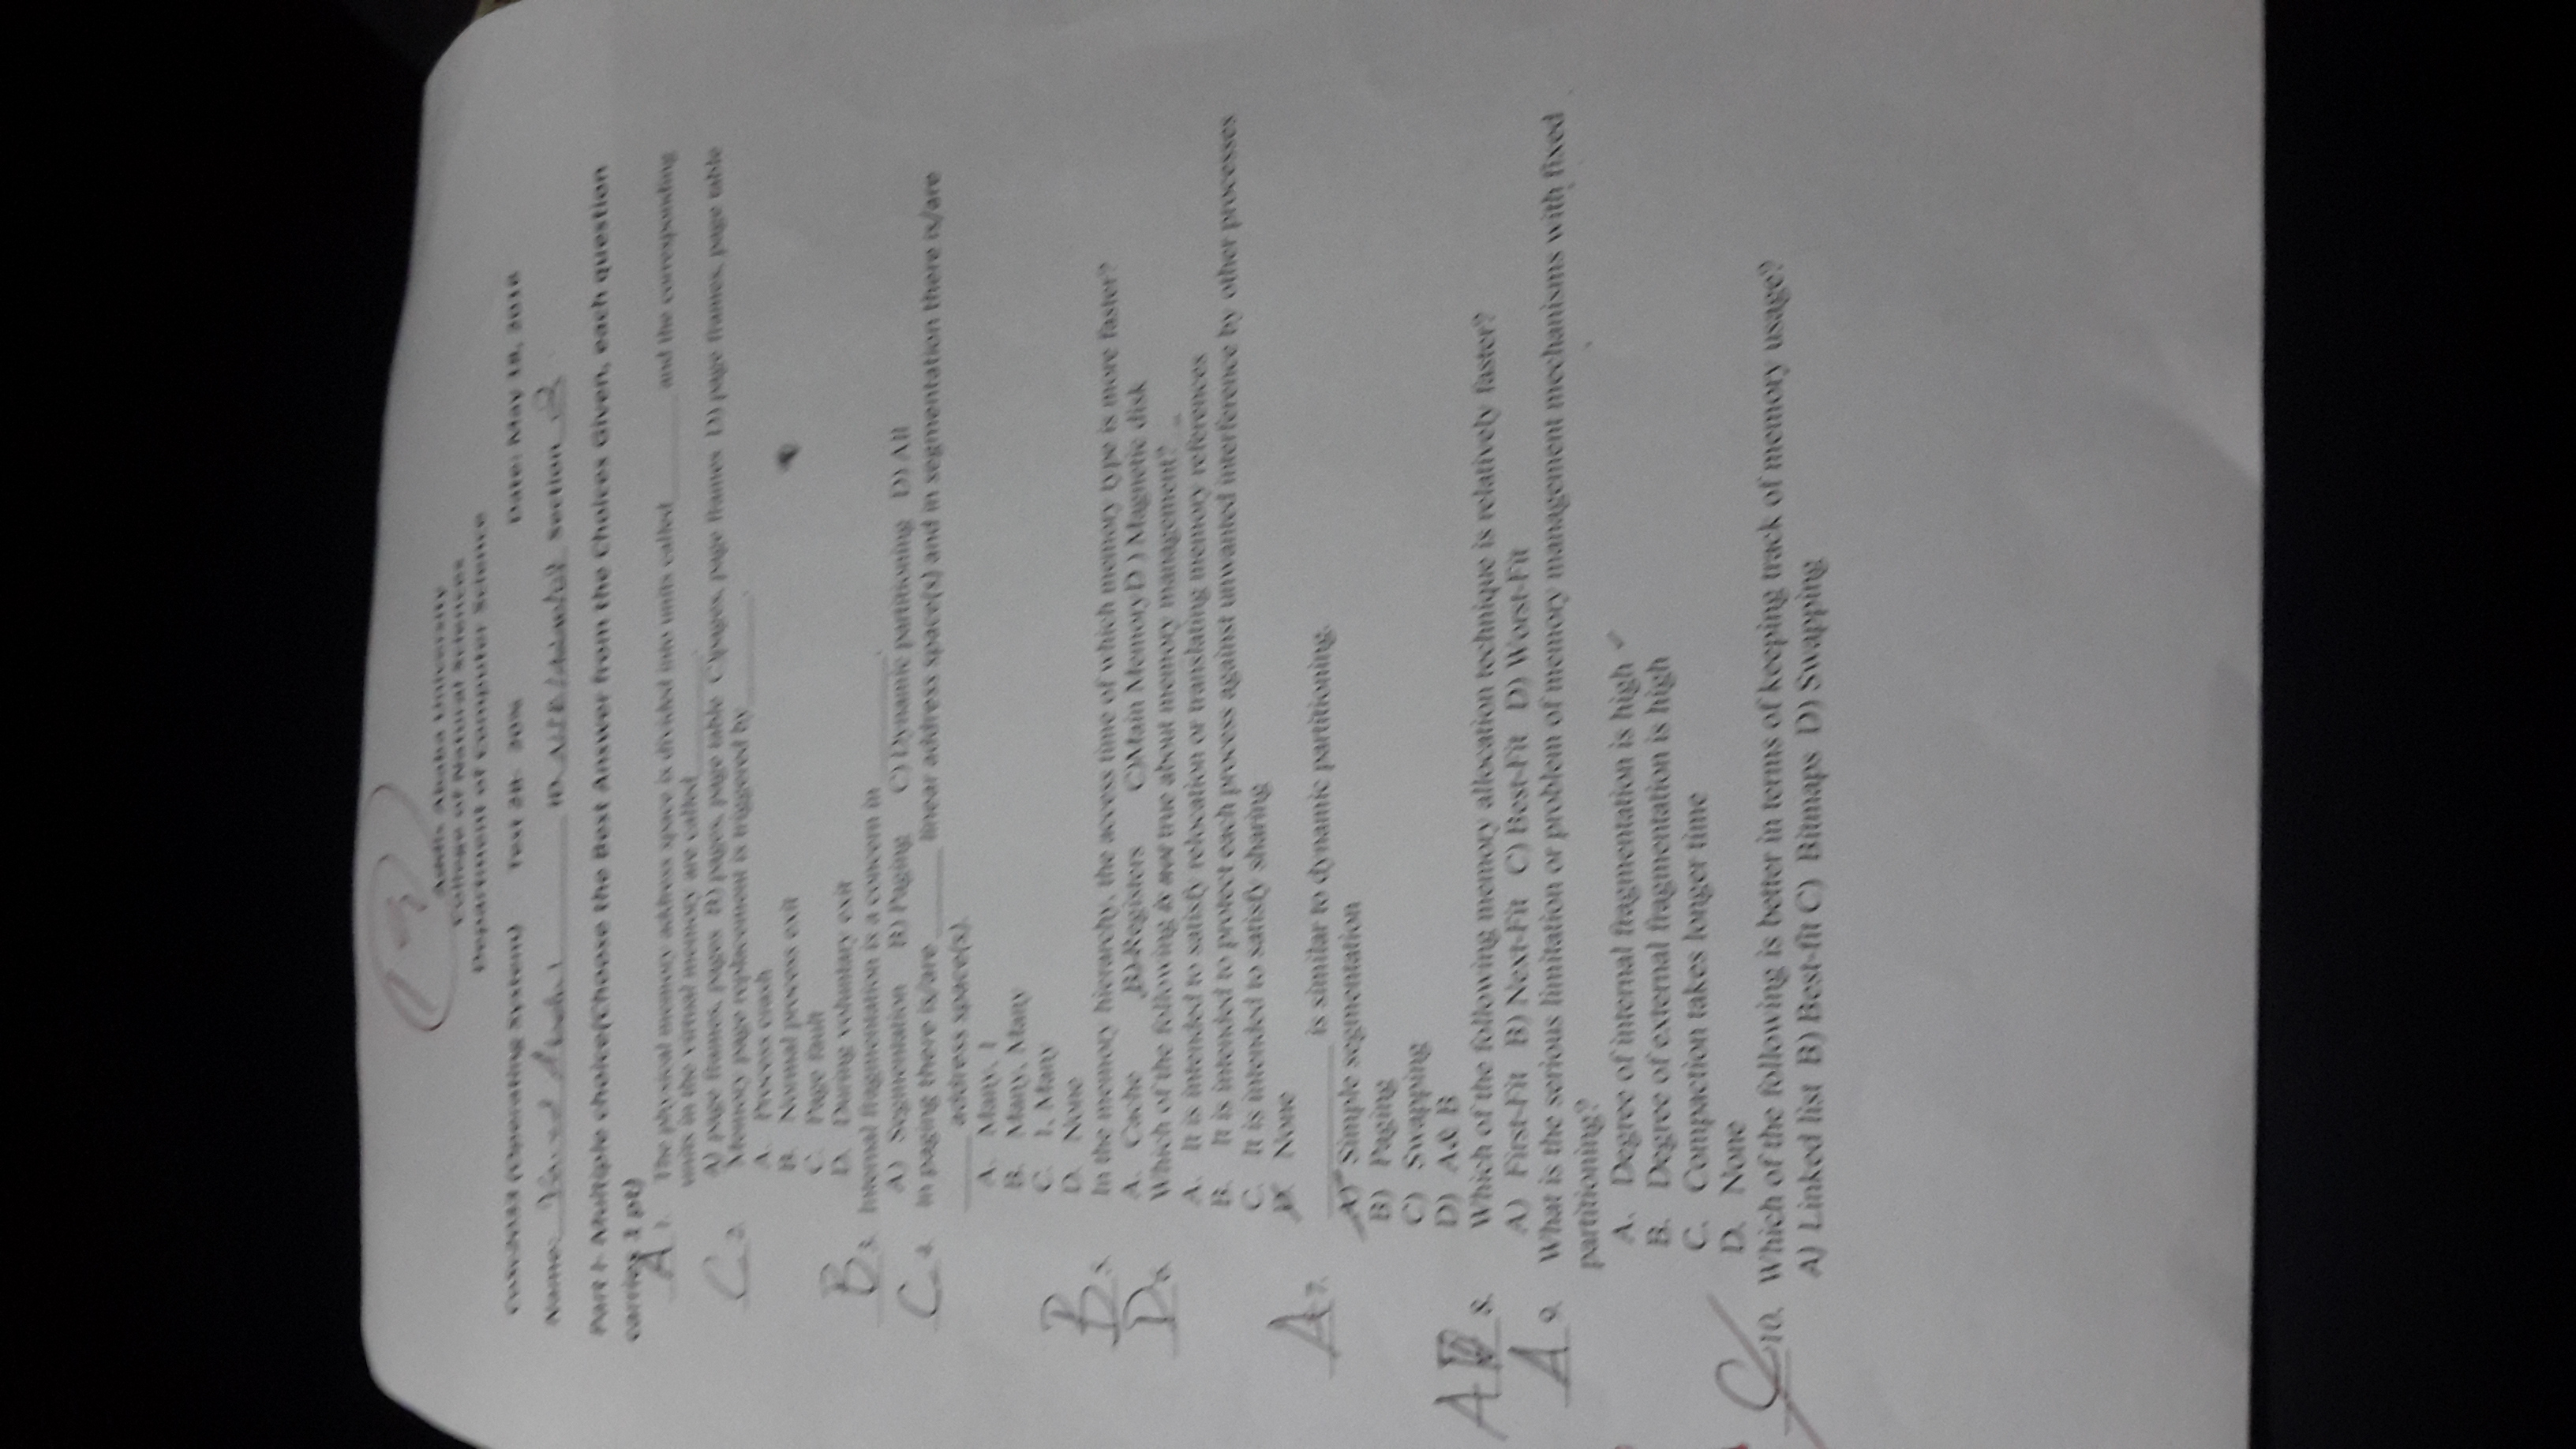 Addis Ababa University
College of Natural Sciences
Department of Computer Science
(Operating System) Test 2B- 20% Date: May 18, 2016
Name: ID. Section 2
Part I- Multiple choice(Choose the Best Answer from the Choices Given, each question
carries 1 pt)
A 1. The physical memory address space is divided into units called________ and the corresponding
units in the virtual memory are called_________.
A) page frames, pages B) pages, page table C)pages, page frames D) page frames, page table
C 2. Memory page replacement is triggered by_________.
A. Process crash
B. Normal process exit
C. Page fault
D. During voluntary exit
B 3. Internal fragmentation is a concern in _________.
A) Segmentation B) Paging C) Dynamic partitioning D) All
C 4. In paging there is/are ______ linear address space(s) and in segmentation there is/are
_____ address space(s).
A. Many, 1
B. Many, Many
C. 1, Many
D. None
B 5. In the memory hierarchy, the access time of which memory type is more faster?
A. Cache B) Registers C)Main Memory D ) Magnetic disk
D 6. Which of the following is not true about memory management?
A. It is intended to satisfy relocation or translating memory references
B. It is intended to protect each process against unwanted interference by other processes
C. It is intended to satisfy sharing
D. None
A 7. ____________ is similar to dynamic partitioning.
A) Simple segmentation
B) Paging
C) Swapping
D) A& B
A 8. Which of the following memory allocation technique is relatively faster?
A) First-Fit B) Next-Fit C) Best-Fit D) Worst-Fit
A 9. What is the serious limitation or problem of memory management mechanisms with fixed
partitioning?
A. Degree of internal fragmentation is high
B. Degree of external fragmentation is high
C. Compaction takes longer time
D. None
C 10. Which of the following is better in terms of keeping track of memory usage?
A) Linked list B) Best-fit C) Bitmaps D) Swapping